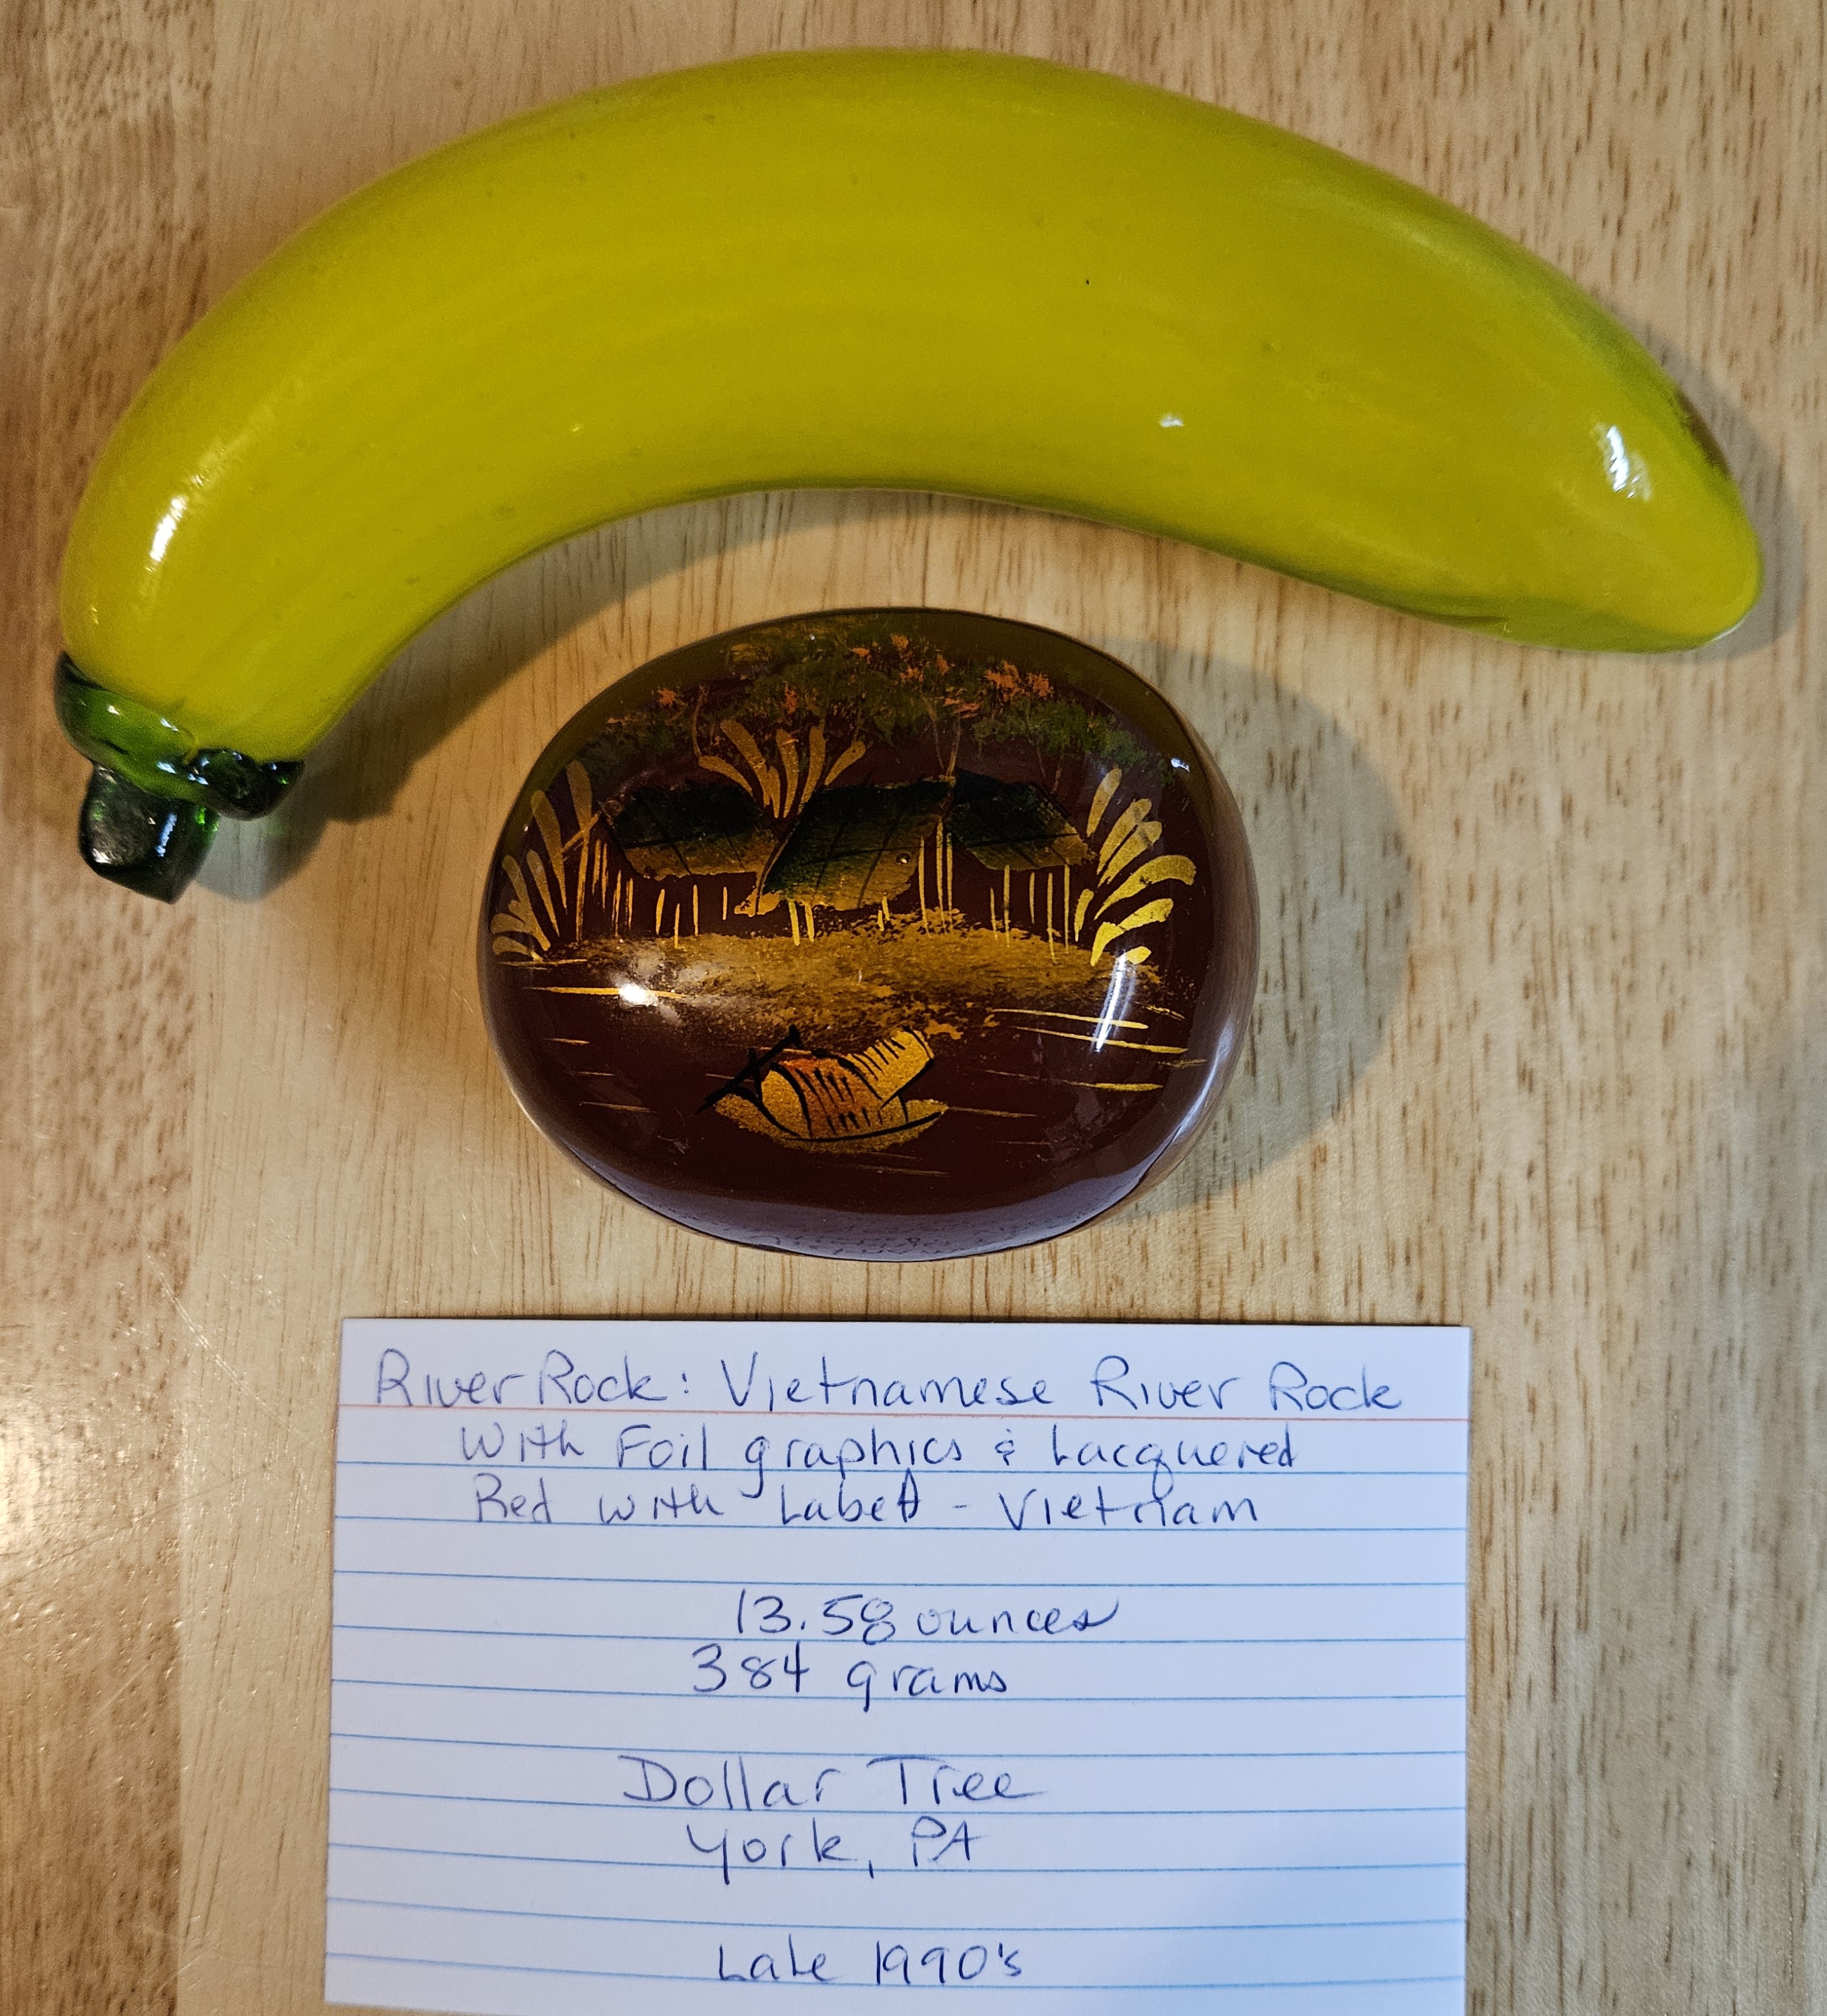 River Rock: Vietnamese River Rock
With Foil graphics & Lacquered
Red with Label - Vietnam
13.58 ounces
384 grams
Dollar Tree
York, PA
Late 1990's